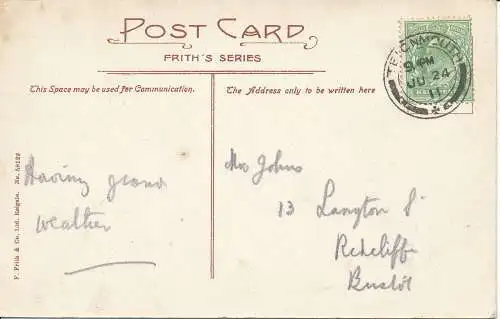 POST CARD
FRITH'S SERIES
This Space may be used for Communication.
The Address only to be written here
TEIGNMOUTH
9 PM
JU 24
11
Having grand
weather
Mrs Johns
13 Langton St
Redcliffe
Bristol
F. Frith & Co. Ltd. Reigate.